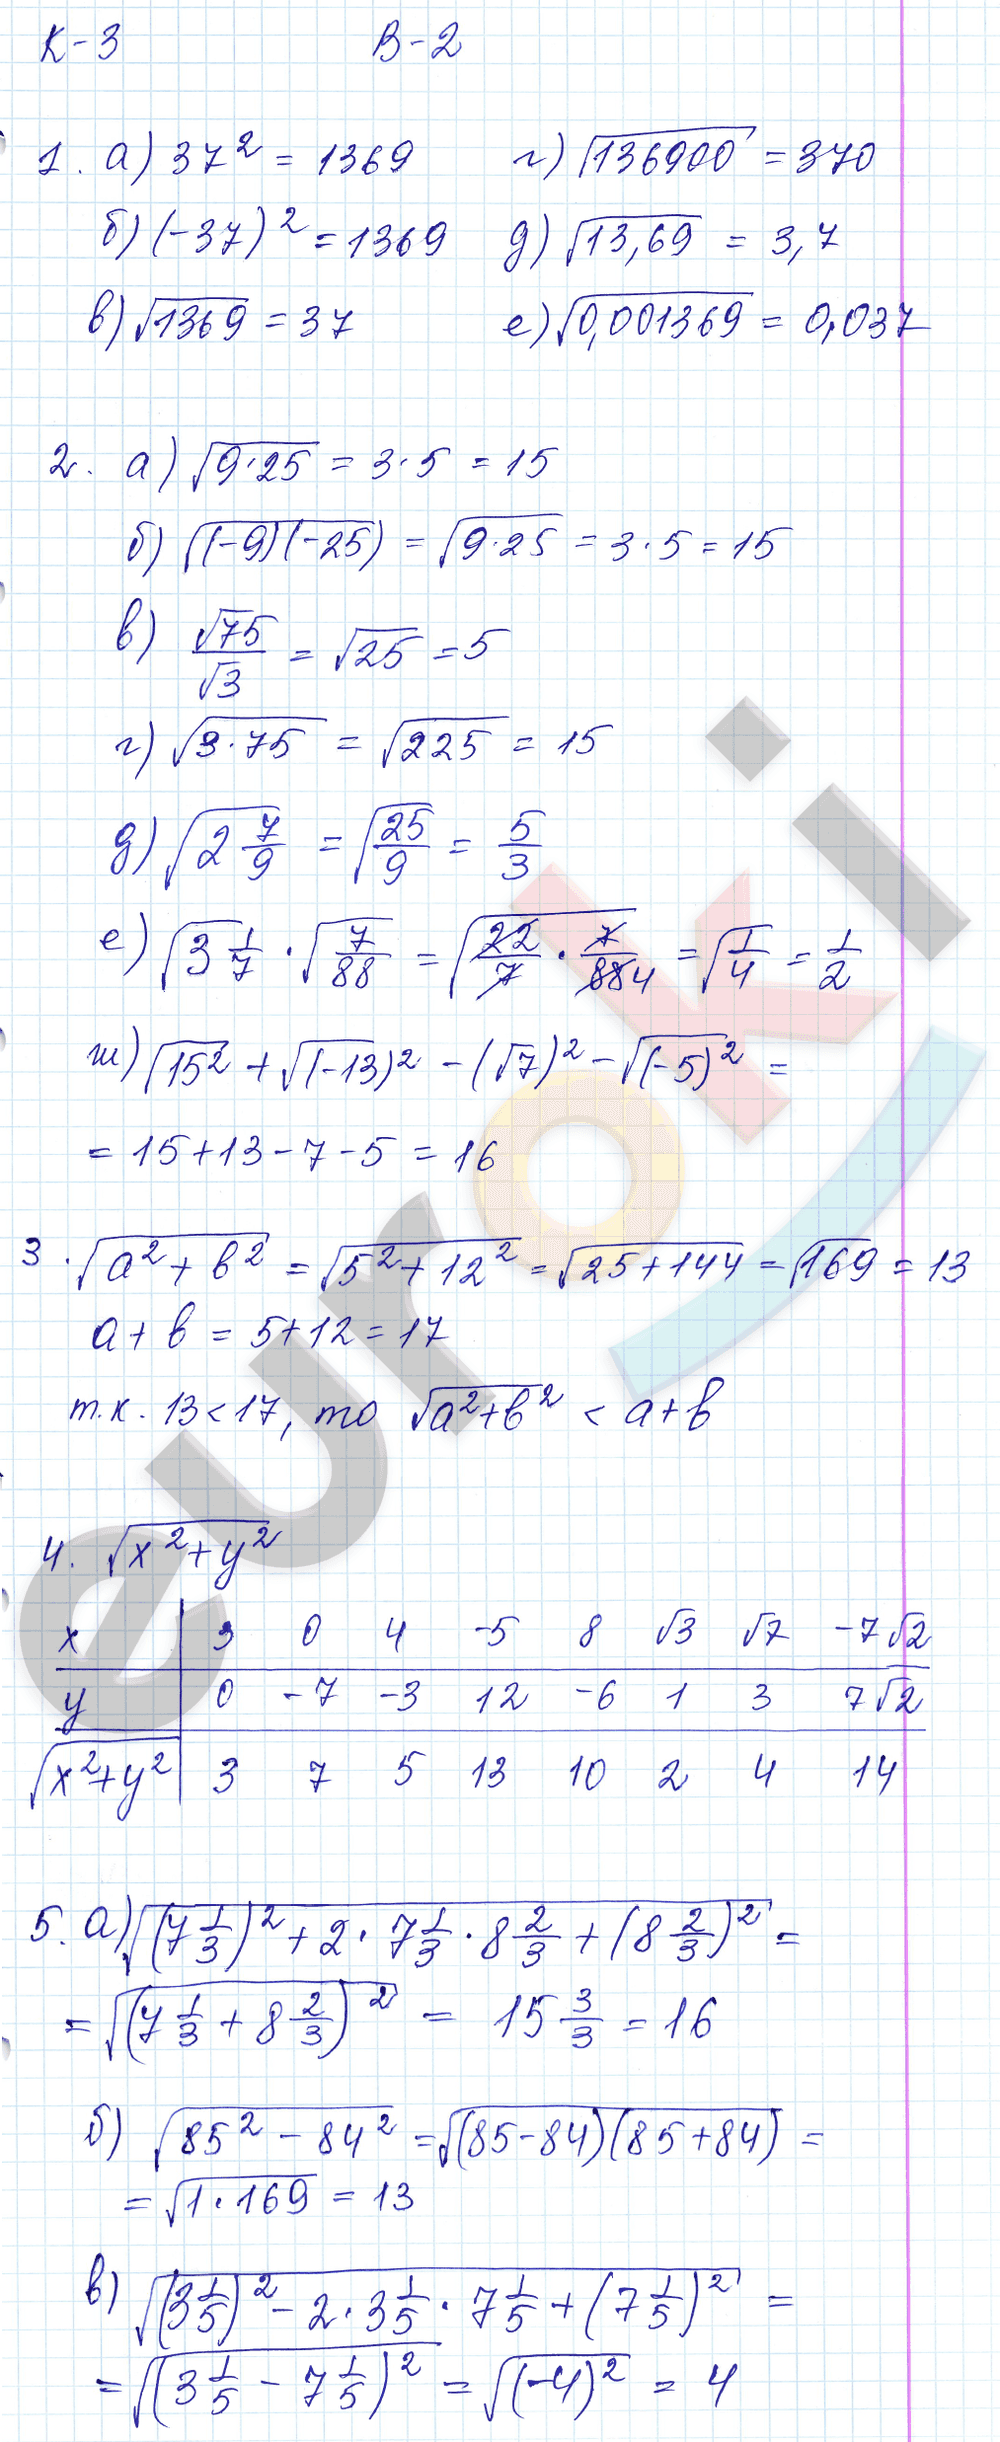 К-3 В-2
1. а) 37² = 1369 г) √136900 = 370
б) (-37)² = 1369 д) √13,69 = 3,7
в) √1369 = 37 е) √0,001369 = 0,037
2. а) √9·25 = 3·5 = 15
б) √(-9)(-25) = √9·25 = 3·5 = 15
в) √75/√3 = √25 = 5
г) √3·75 = √225 = 15
д) √2 7/9 = √25/9 = 5/3
е) √3 1/7 · √7/88 = √22/7 · 7/88 4 = √1/4 = 1/2
ж) √15² + √(-13)² - (√7)² - √(-5)² =
= 15+13-7-5 = 16
3. √a²+b² = √5²+12² = √25+144 = √169 = 13
a+b = 5+12 = 17
т.к. 13<17, то √a²+b² < a+b
4. √x²+y²
x 3 0 4 -5 8 √3 √7 -7√2
y 0 -7 -3 12 -6 1 3 7√2
√x²+y² 3 7 5 13 10 2 4 14
5. а) √(7 1/3)² + 2·7 1/3·8 2/3 + (8 2/3)² =
= √(7 1/3 + 8 2/3)² = 15 3/3 = 16
б) √85² - 84² = √(85-84)(85+84) =
= √1·169 = 13
в) √(3 1/5)² - 2·3 1/5·7 1/5 + (7 1/5)² =
= √(3 1/5 - 7 1/5)² = √(-4)² = 4
euroki